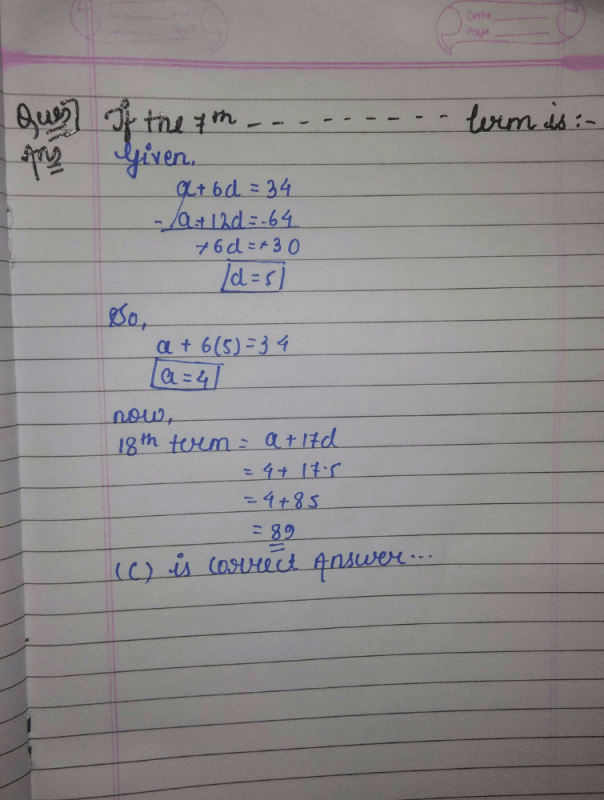 Date
Page
Ques] If the 7th - - - - - - - - - term is :-
Ans Given,
a + 6d = 34
- a + 12d = -64
+6d = +30
d = 5
So,
a + 6(5) = 34
a = 4
now,
18th term = a + 17d
= 4 + 17·5
= 4 + 85
= 89
(C) is correct Answer...